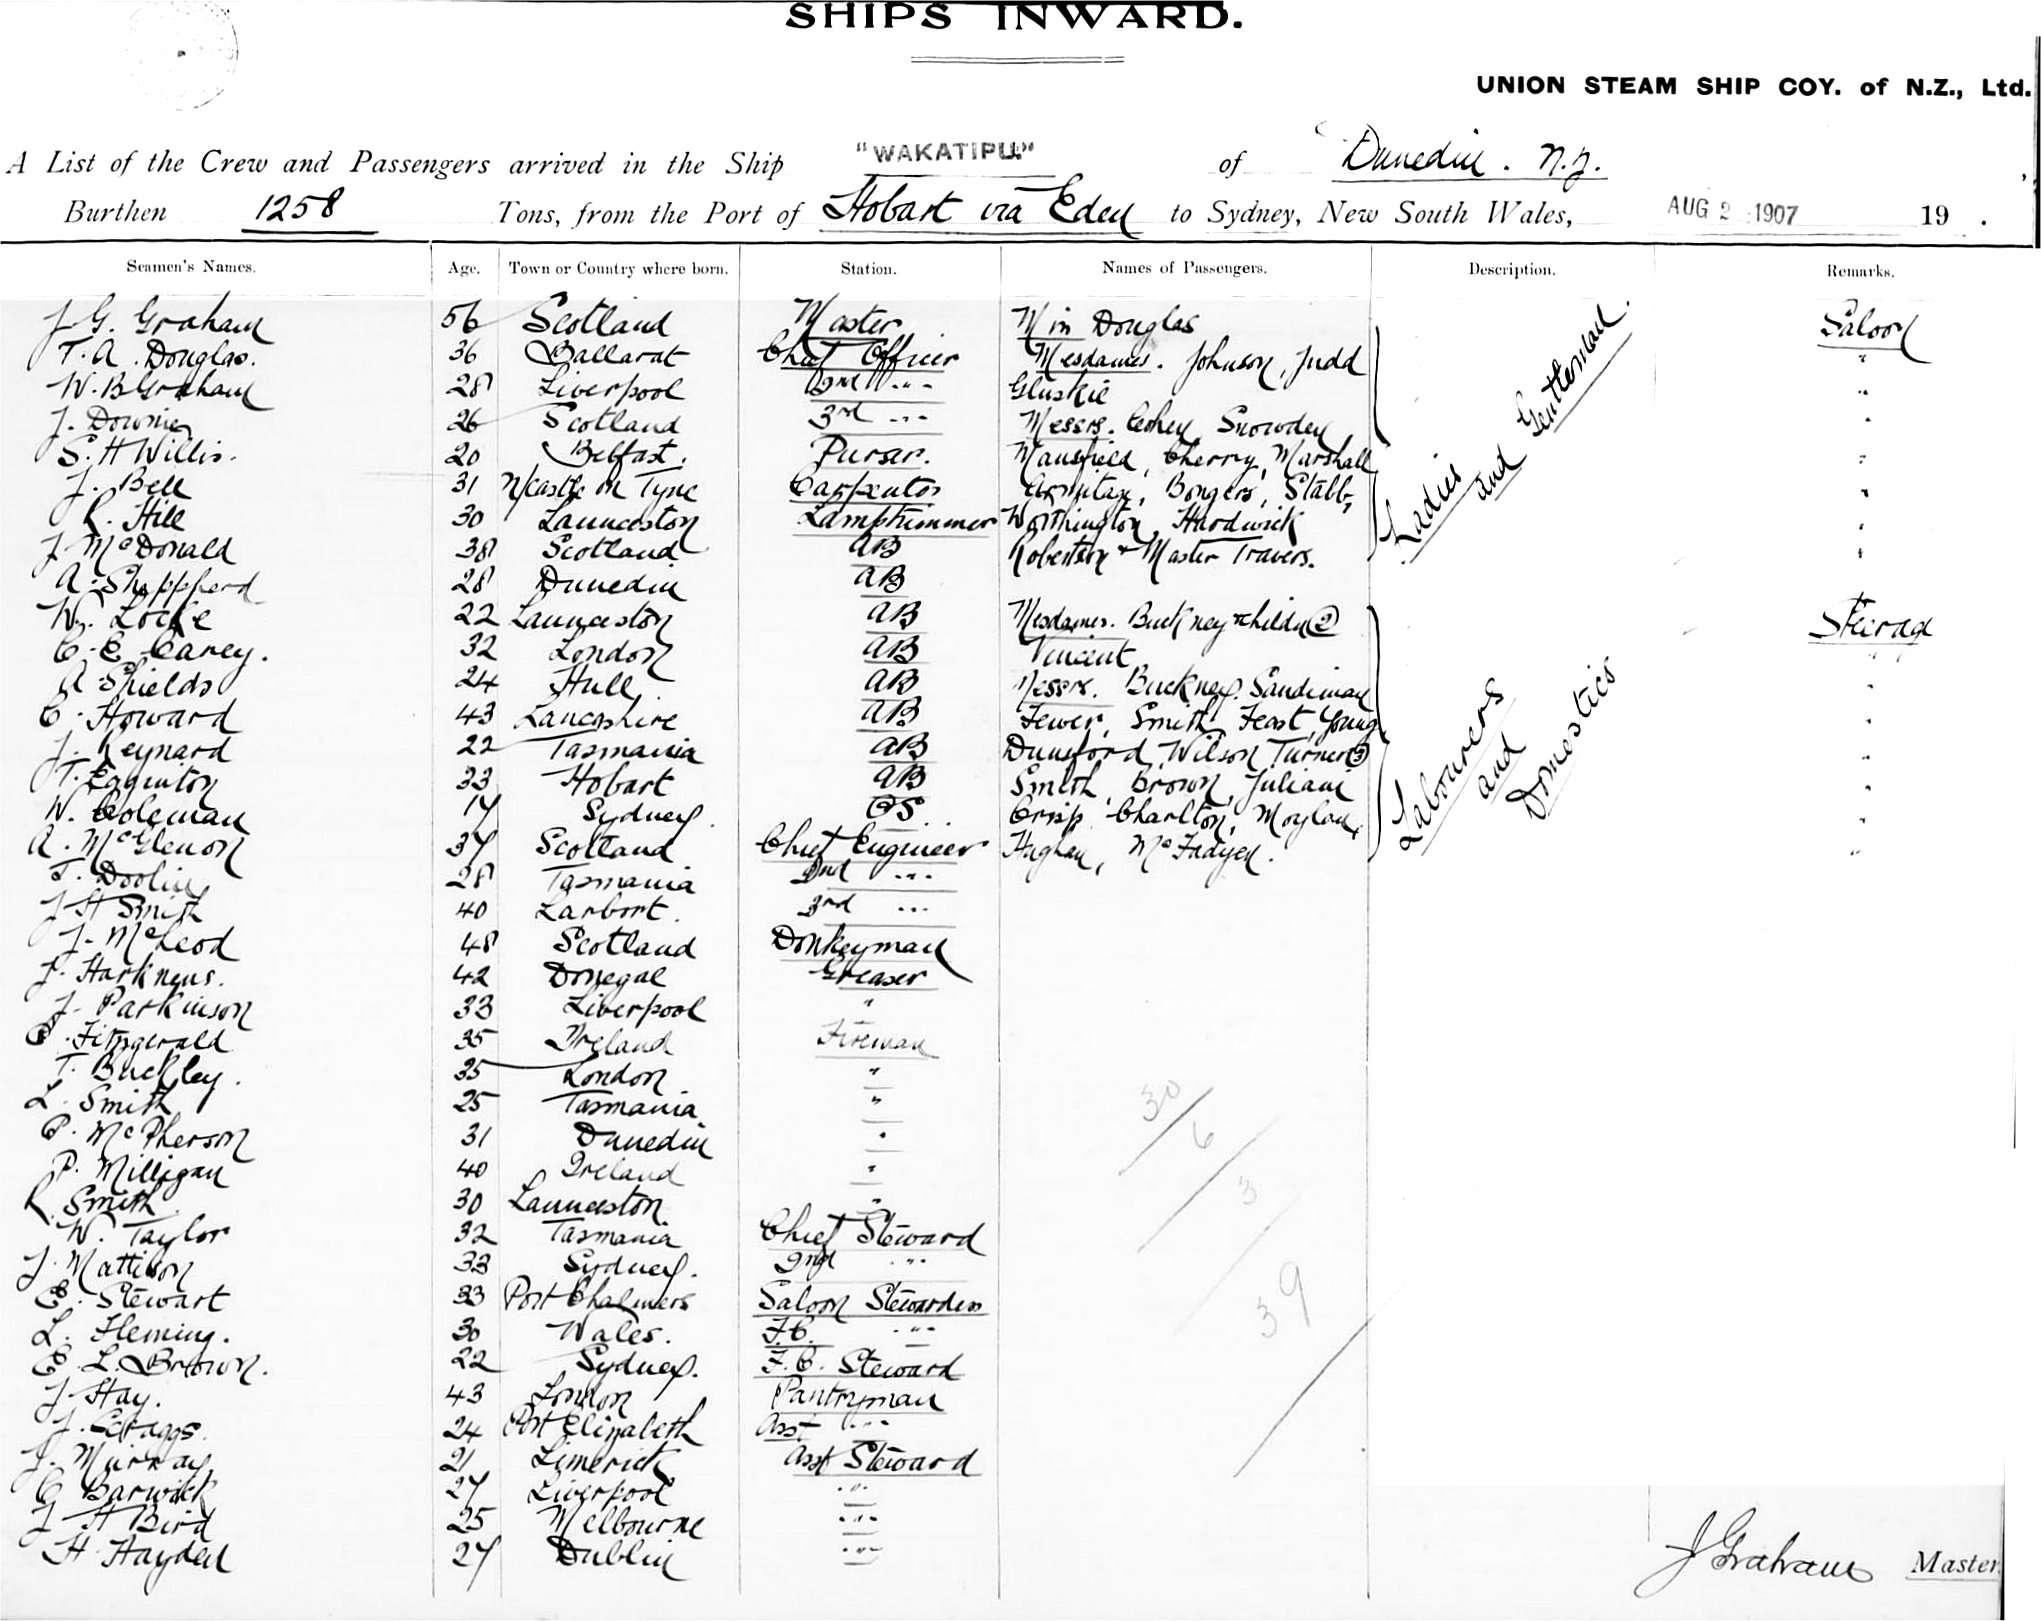 SHIPS INWARD.
UNION STEAM SHIP COY. of N.Z., Ltd.
A List of the Crew and Passengers arrived in the Ship "WAKATIPU." of Dunedin. N.Z.
Burthen 1258 Tons, from the Port of Hobart via Eden to Sydney, New South Wales, AUG 2 1907 19 .
Seamen's Names. Age. Town or Country where born. Station. Names of Passengers. Description. Remarks.
J G. Graham 56 Scotland Master Miss Douglas Saloon
T. A. Douglas. 36 Ballarat Chief Officer Mesdames. Johnson, Judd "
W. B Graham 28 Liverpool 2nd " Gluskie "
J. Downie 26 Scotland 3rd " Messrs. Cohen Snowden "
S. H Willis. 20 Belfast. Purser. Mansfield, Cherry, Marshall "
J. Bell 31 N/castle on Tyne Carpenter Armitage, Bongers, Stabb, "
R. Hill 30 Launceston Lamptrimmer Worthington, Hardwick "
J McDonald 38 Scotland AB Robertson + Master Travers. "
Ladies and Gentleman.
A. Shappherd 28 Dunedin AB
W. Locke 22 Launceston AB Mesdames. Buckney + childn (2) Steerage
C. E. Carey. 32 London AB Vincent "
A Shields 24 Hull. AB Messrs. Buckney. Sandiman "
C. Howard 43 Lancashire AB Fewer, Smith, Feast, Young "
J. Reynard 22 Tasmania AB Dunsford, Wilson Turner (3) "
T. Egginton 23 Hobart AB Smith, Brown, Juliani "
W. Coleman 17 Sydney. OS. Crisp Charlton, Moylan, "
A. McGlenon 37 Scotland Chief Engineer Hughan, McFadyen. "
Labourers and Domestics
T. Doolin 28 Tasmania 2nd "
J H Smith 40 Larbort. 3rd "
J. McLeod 48 Scotland Donkeyman
J. Harkness. 42 Donegal Greaser
J. Parkinson 33 Liverpool "
P. Fitzgerald 35 Ireland Fireman
T. Buckley. 35 London "
L. Smith 25 Tasmania "
P. McPherson 31 Dunedin "
30
P. Milligan 40 Ireland "
6
R. Smith 30 Launceston "
3
W. Taylor 32 Tasmania Chief Steward
J. Mattison 33 Sydney. 2nd "
E. Stewart 33 Port Chalmers Saloon Stewardess
39
L. Fleming. 30 Wales. F.C. "
E. L. Brown. 22 Sydney. F.C. Steward
J. Hay. 43 London Pantryman
J. Scraggs. 24 Port Elizabeth Asst "
J. Murray 21 Limerick Asst Steward
C Barwick 27 Liverpool "
J H Bird 25 Melbourne "
H. Hayden 27 Dublin "
J Graham Master